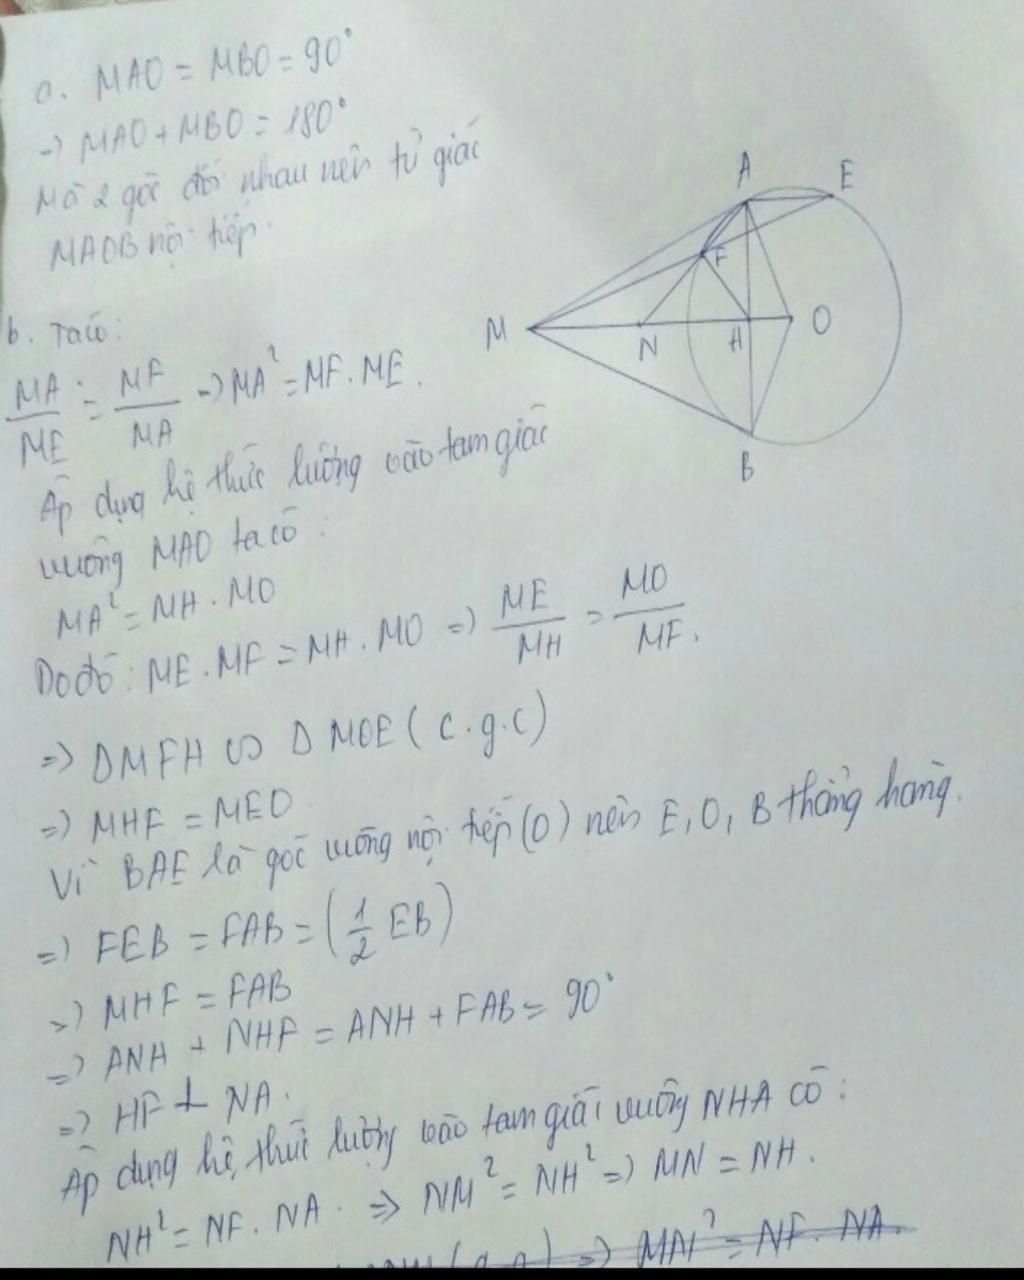 a. MAO = MBO = 90°
=> MAO + MBO = 180°
Mà 2 góc đối nhau nên tứ giác
MAOB nội tiếp.
b. Ta có:
MA/ME = MF/MA => MA² = MF. ME.
Áp dụng hệ thức lượng vào tam giác
vuông MAO ta có:
MA² = MH. MO
Do đó: ME. MF = MH. MO => ME/MH = MO/MF.
=> ΔMFH ∽ Δ MOE (c.g.c)
=> MHF = MEO
Vì BAE là góc vuông nội tiếp (O) nên E, O, B thẳng hàng.
=> FEB = FAB = (1/2 EB)
=> MHF = FAB
=> ANH + NHF = ANH + FAB = 90°
=> HF ⊥ NA.
Áp dụng hệ thức lượng vào tam giác vuông NHA có:
NH² = NF. NA. => NM² = NH² => MN = NH.
=> MN² = NF. NA.
A
E
F
M
N
H
O
B